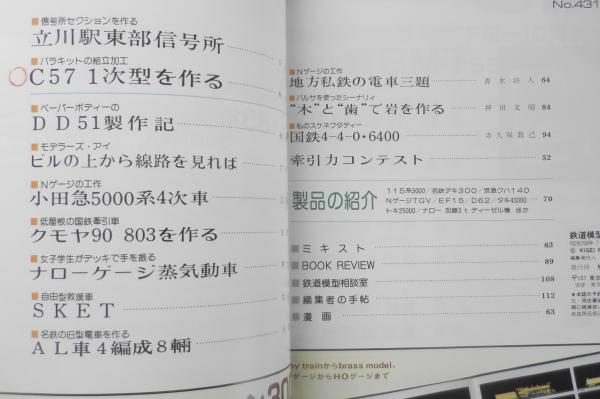 ■信号所セクションを作る
立川駅東部信号所
■バラキットの組立加工
C57 1次型を作る
■ペーパーボディーの
DD51製作記
■モデラーズ・アイ
ビルの上から線路を見れば
■Nゲージの工作
小田急5000系4次車
■低屋根の国鉄牽引車
クモヤ90 803を作る
■女子学生がデッキで手を振る
ナローゲージ蒸気動車
■自由型救援車
SKET
■名鉄の旧型電車を作る
AL車4編成8輛
No.431
■Nゲージの工作
地方私鉄の電車三題 64
■バルサを使ったシーナリィ
"木"と"歯"で岩を作る 押田文昭 84
■私のスケネクタディー
国鉄4-4-0・6400 寺久保敦己 94
牽引力コンテスト 52
製品の紹介
115系3000／名鉄デキ300／京急クハ140
NゲージTGV／EF15／D62／タキ43000
トキ25000／ナロー 加藤3t ディーゼル機 ほか
70
■ミキスト 63
■BOOK REVIEW 89
■鉄道模型相談室 108
■編集者の手帖 112
■漫画 63
鉄道模型
by trainからbrass model.
ゲージからHOゲージまで